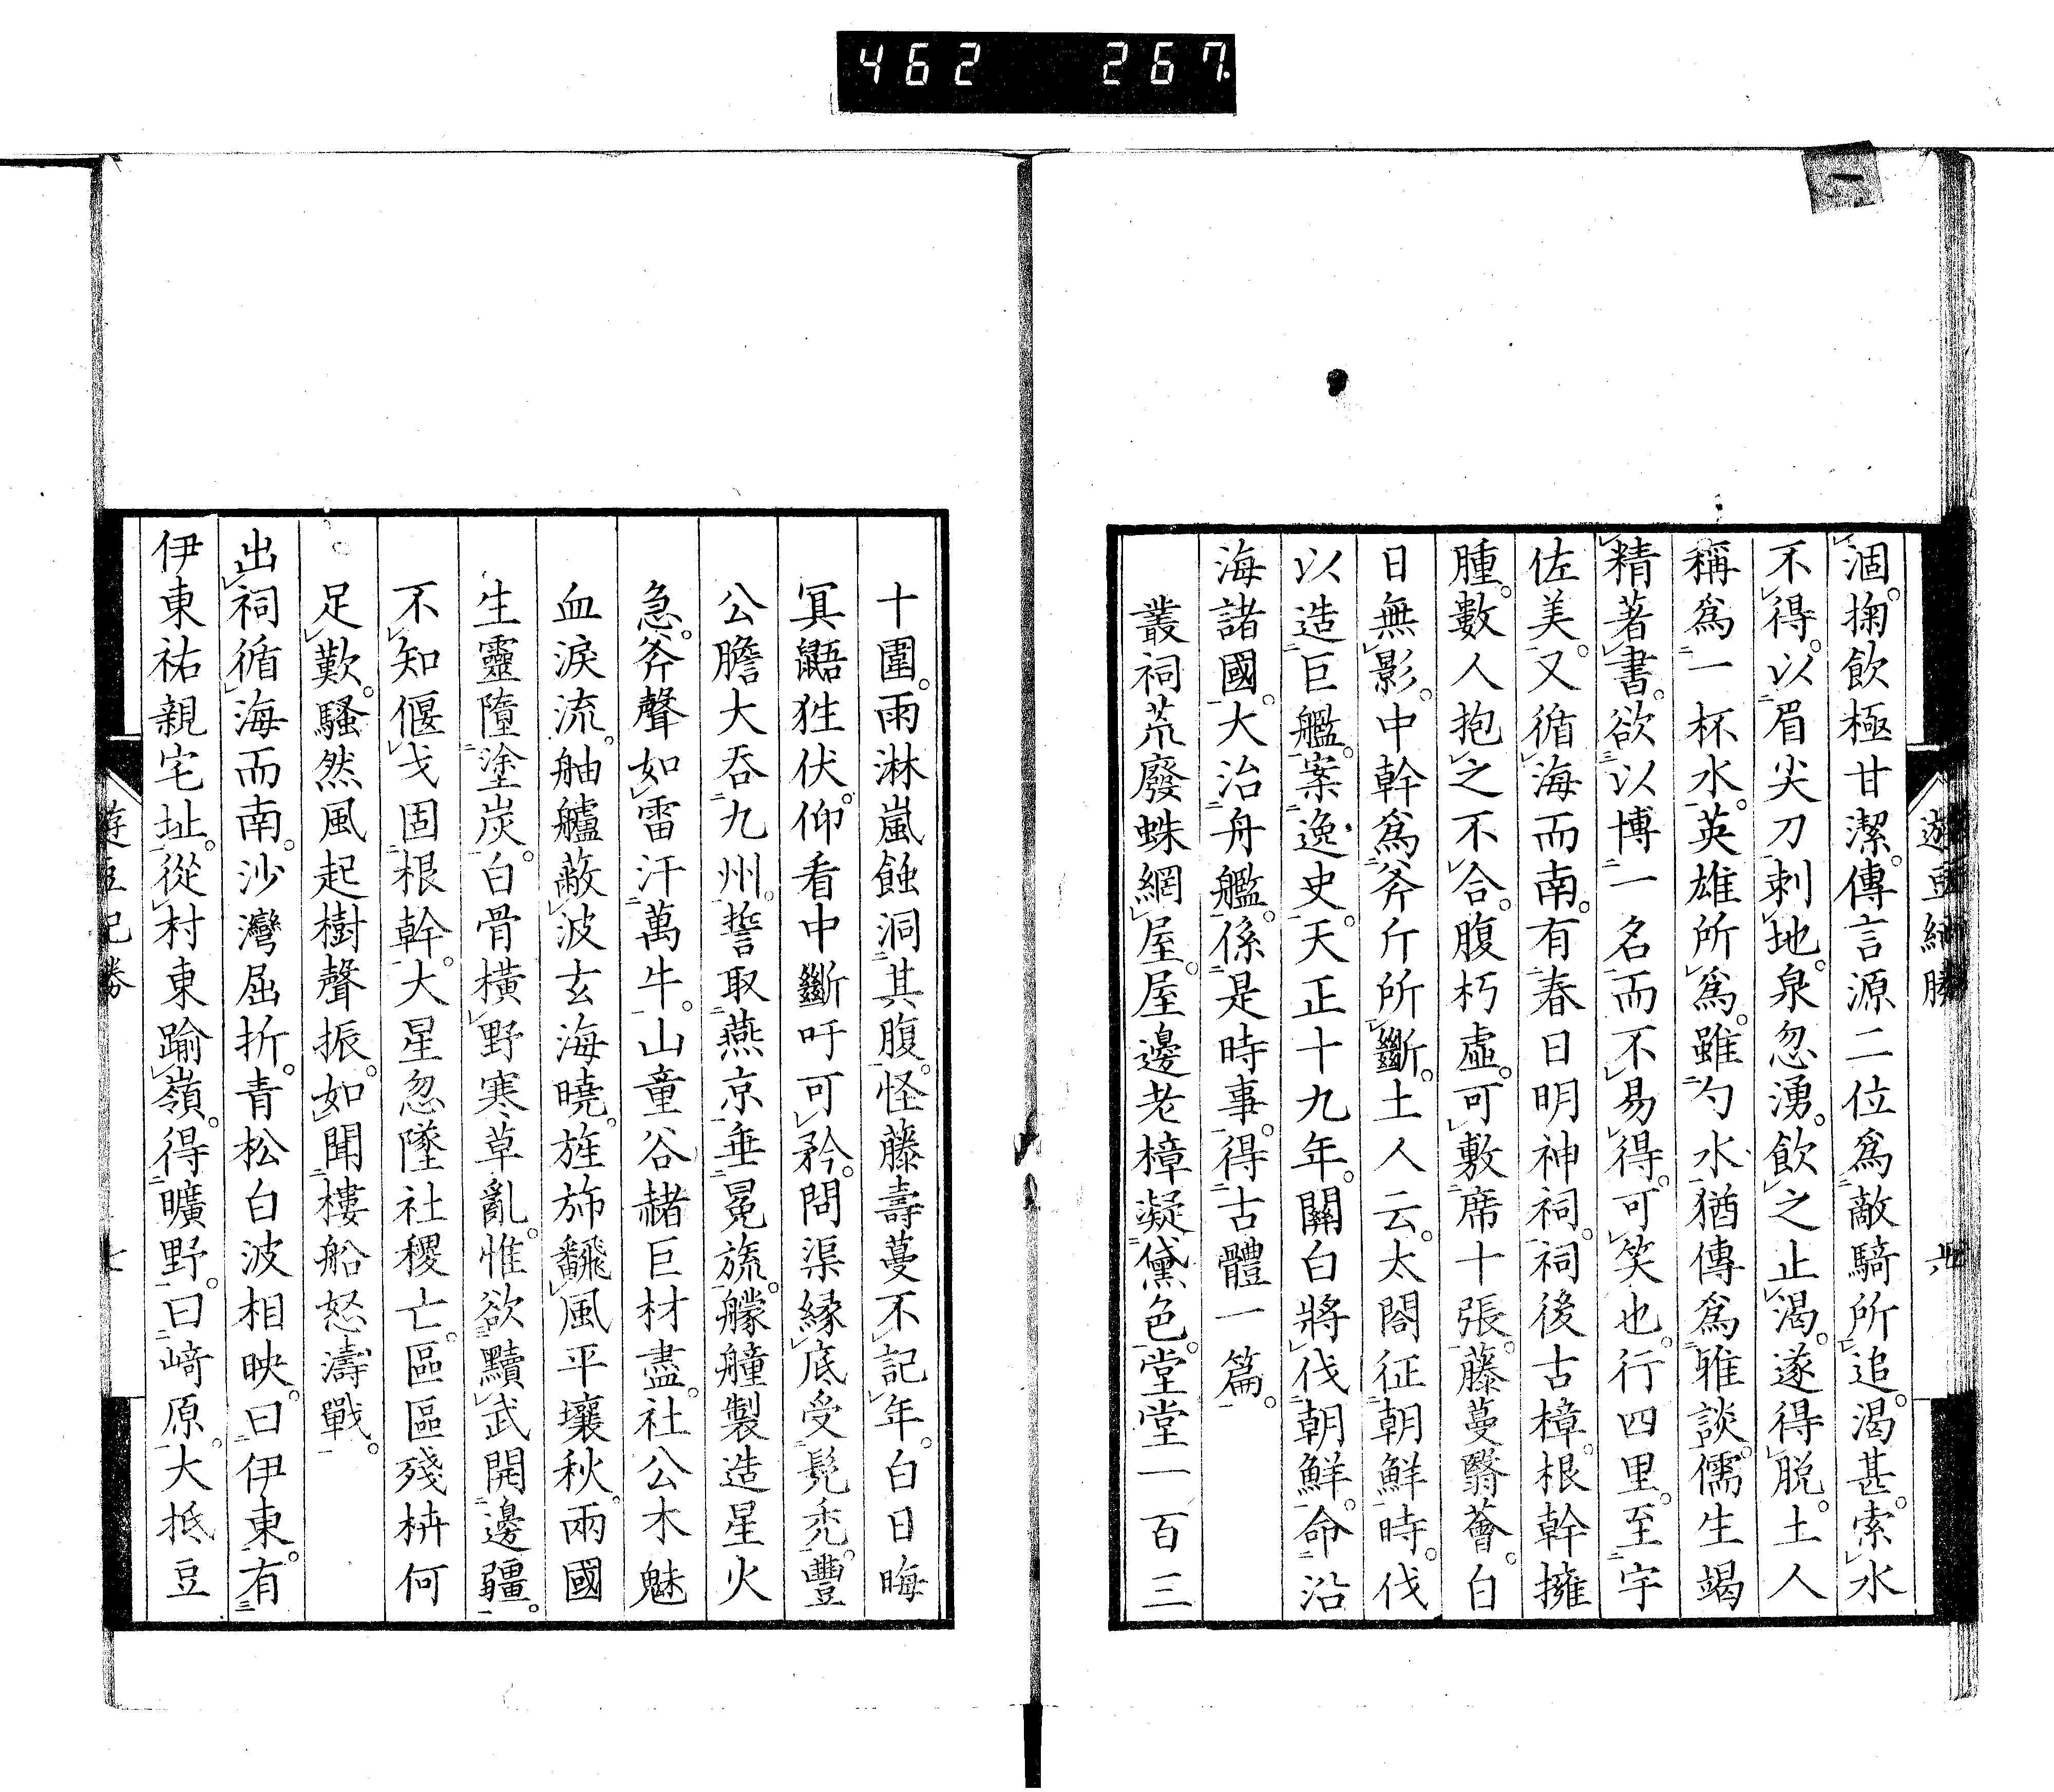 462 267
遊豆紀勝 六
涸。掬飲極甘潔。傳言源二位爲敵騎所追。渴甚。索水
不得。以眉尖刀刺地。泉忽湧。飲之止渴。遂得脱。土人
稱爲一杯水。英雄所爲。雖勺水、猶傳爲雅談。儒生竭
精著書。欲以博一名而不易得。可笑也。行四里。至宇
佐美。又循海而南。有春日明神祠。祠後古樟。根幹擁
腫。數人抱之不合。腹朽虛。可敷席十張。藤蔓翳薈。白
日無影。中幹爲斧斤所斷。土人云。太閤征朝鮮時。伐
以造巨艦。案逸史。天正十九年。關白將伐朝鮮。命沿
海諸國。大治舟艦。係是時事。得古體一篇。
叢祠荒廢蛛網屋。屋邊老樟凝黛色。堂堂一百三
十圍。雨淋嵐蝕洞其腹。怪藤壽蔓不記年。白日晦
冥鼯狌伏。仰看中斷吁可矜。問渠緣底受髡禿。豐
公膽大吞九州。誓取燕京垂冕旒。艨艟製造星火
急。斧聲如雷汗萬牛。山童谷赭巨材盡。社公木魅
血淚流。舳艫蔽波玄海曉。旌旆翻風平壤秋。兩國
生靈墮塗炭。白骨橫野寒草亂。惟欲黷武開邊疆。
不知偃戈固根幹。大星忽墜社稷亡。區區殘枿何
足歎。騷然風起樹聲振。如聞樓船怒濤戰。
出祠循海而南。沙灣屈折。青松白波相映。曰伊東。有
伊東祐親宅址。從村東踰嶺。得曠野。曰﨑原。大抵豆
遊豆紀勝 七